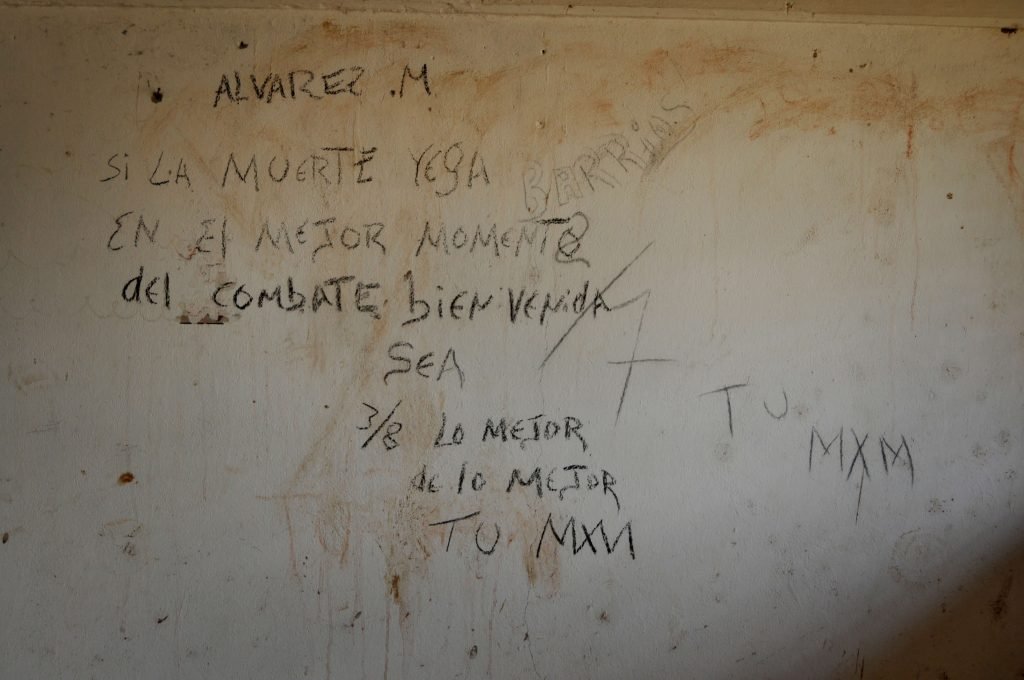 ALVAREZ .M
Si LA MUERTE YEgA
BARRiOS
EN El MEJOR MOMENTO
del COMbATE bien Venida
SEA
3/8 Lo MEJOR
de lo MEJOR
TU MXM
TU
MXM